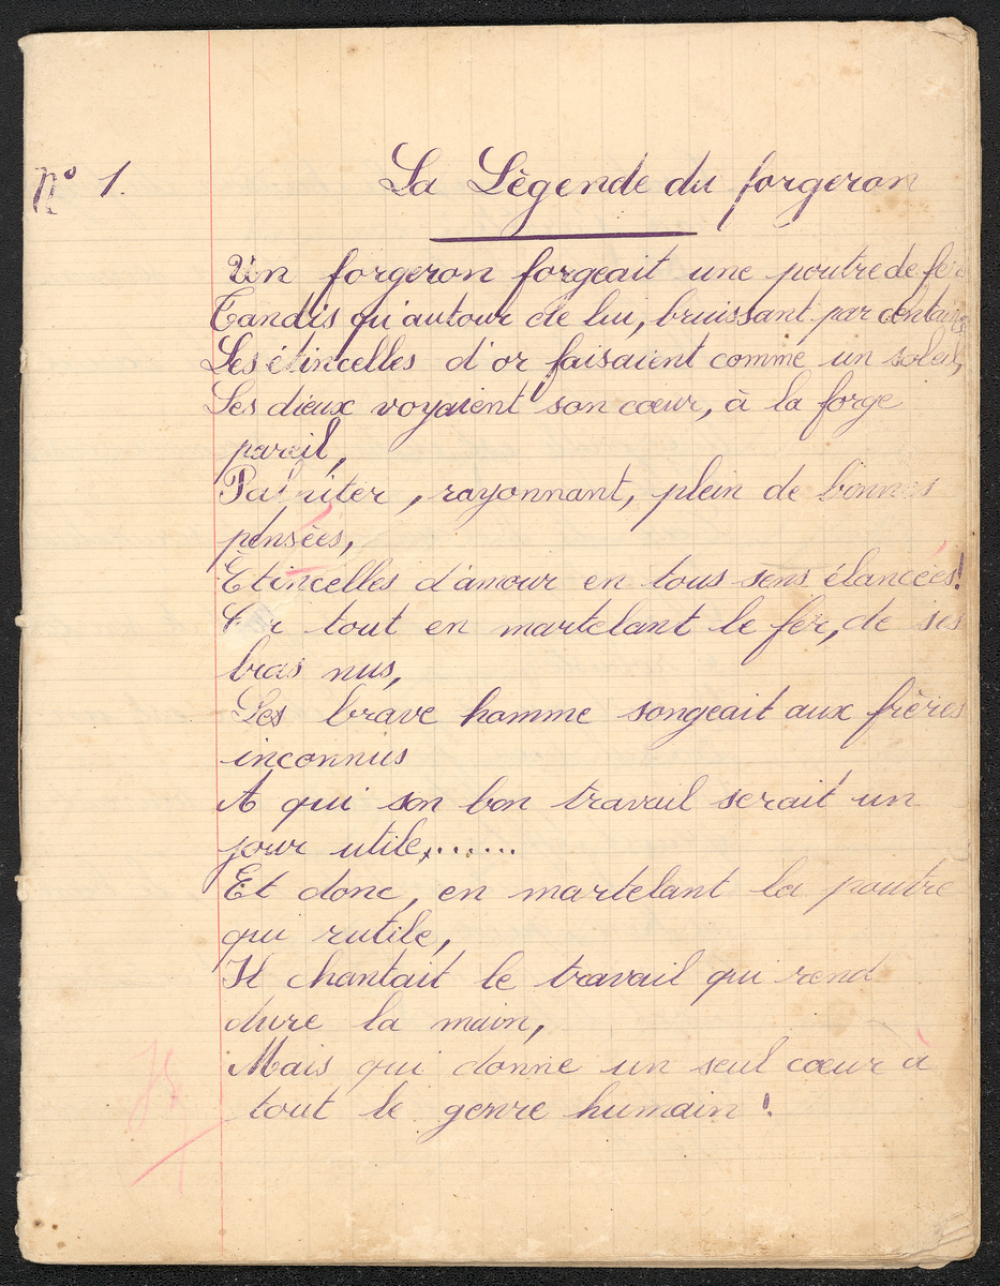 N° 1.
La Légende du forgeron
Un forgeron forgeait une poutre de fer
Tandis qu'autour de lui, bruissant par centaines
Les étincelles d'or faisaient comme un soleil,
Les dieux voyaient son cœur, à la forge
pareil,
Palpiter, rayonnant, plein de bonnes
pensées,
Étincelles d'amour en tous sens élancées!
Car tout en martelant le fer, de ses
bras nus,
Les brave homme songeait aux frères
inconnus
A qui son bon travail serait un
jour utile,......
Et donc, en martelant la poutre
qui rutile,
Il chantait le travail qui rend
dure la main,
Mais qui donne un seul cœur à
tout le genre humain!